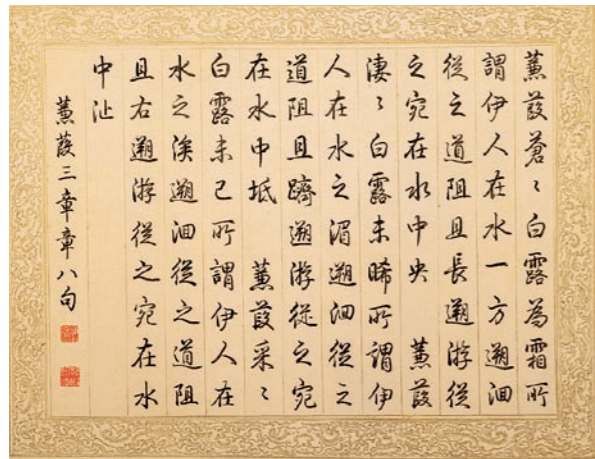 蒹葭蒼〻白露為霜所
謂伊人在水一方遡洄
從之道阻且長遡游從
之宛在水中央　蒹葭
淒〻白露未晞所謂伊
人在水之湄遡洄從之
道阻且躋遡游從之宛
在水中坻　蒹葭采〻
白露未已所謂伊人在
水之涘遡洄從之道阻
且右遡游從之宛在水
中沚
蒹葭三章章八句